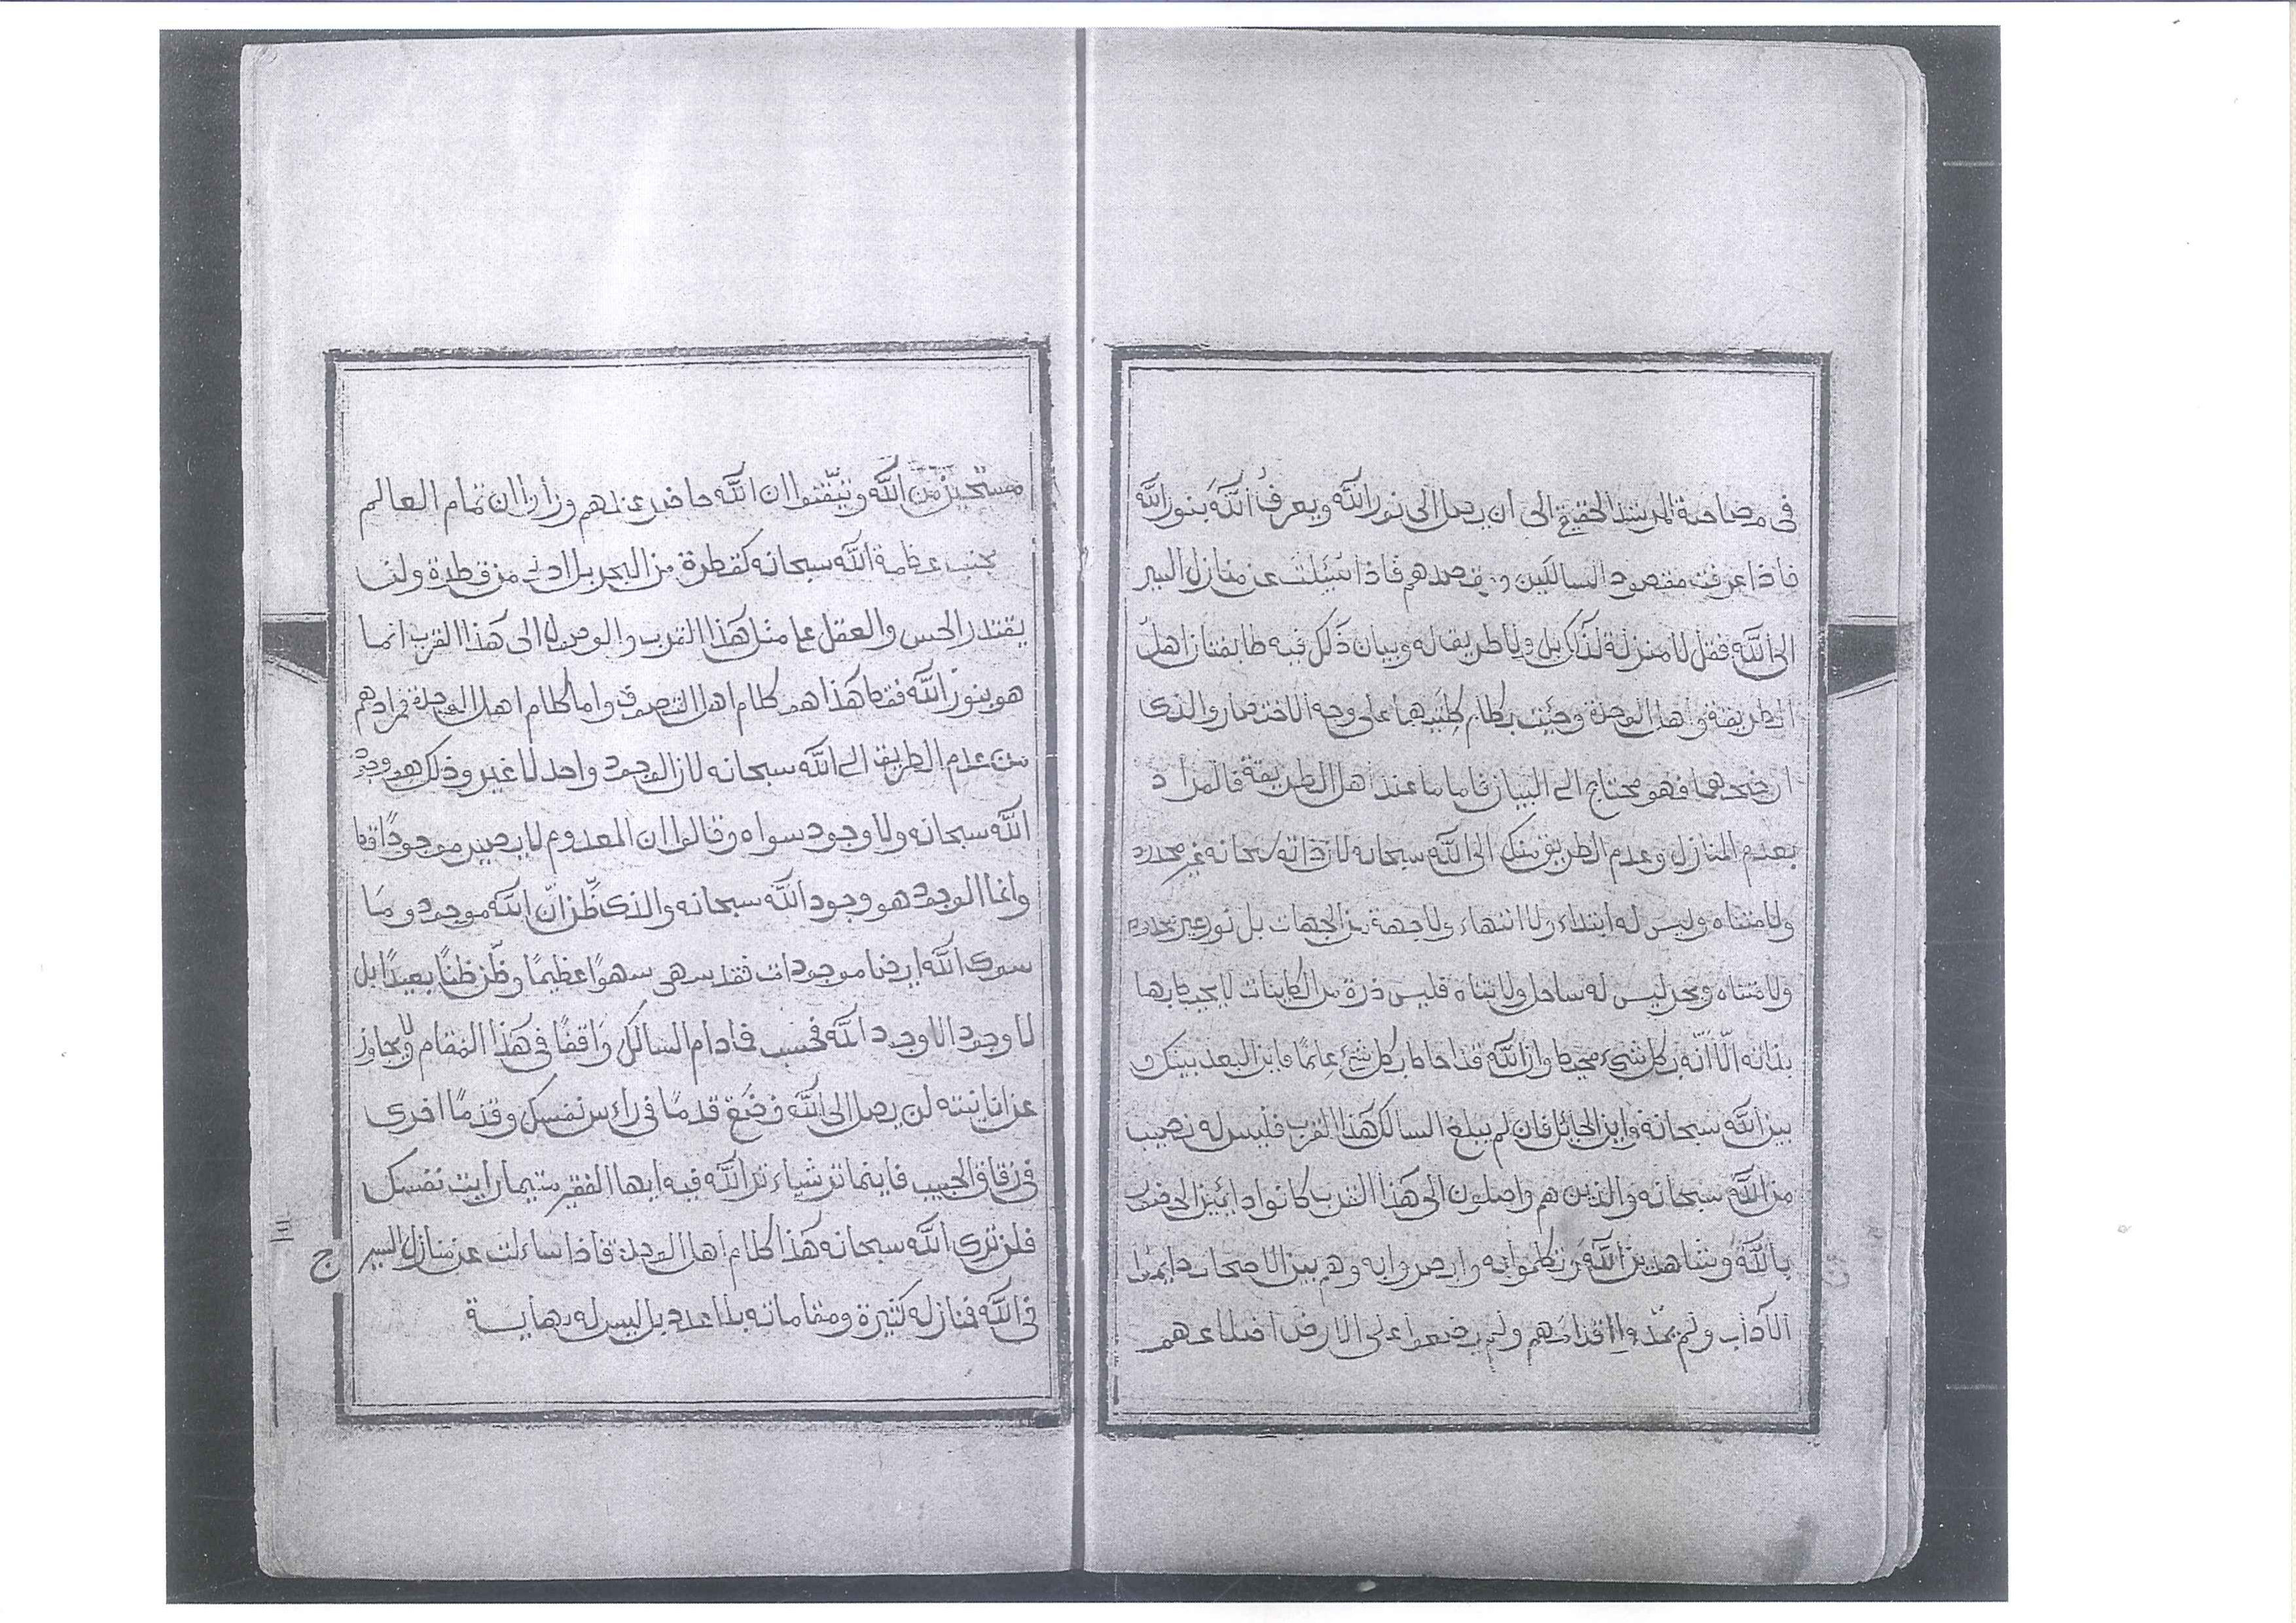 فى مصاحبة المرشد الحقيقى الى ان يصل الى نور الله ويعرف الله بنور الله
فاذا عرفت مقصود السالكين و مقصدهم فاذا سئلت عن منازل السير
الى الله فقل لا منزلة لذلك بل ولا طريق له وبيان ذلك فيه طايفتان اهل
الطريقة واهل الوحدة وجئت بكلام كليهما على وجه الاختصار والذى
اوضحهما فهو محتاج الى البيان فاما ما عند اهل الطريقة فالمراد
بعدم المنازل وعدم الطريق منك الى الله سبحانه لان ذاته سبحانه غير محدود
ولا متناه وليس له ابتداء ولا انتهاء ولا جهة من الجهات بل نور غير محدود
ولا متناه وبحر ليس له ساحل ولا تناه فليس ذرة من الكاينات لا يحيط بها
بذاته الّا انّه بكل شىء محيط وان الله قد احاط بكل شئ علمًا فاين البعد بينك
بين الله سبحانه واين الحائل فان لم يبلغ السالك هذا القرب فليس له نصيب
من الله سبحانه والذين هم واصلون الى هذا القرب كانوا دائبين الحضور
بالله وشاهدين الله وتكلموا به وابصروا به وهم بين الاصحاب دايما
الآداب ولم يمدّوا اقدامهم ولم يضعوا على الارض اضلاعهم
مستحيين من الله وتيقّنوا ان الله حاضر عندهم وراوا ان تمام العالم
بجنب عظمة الله سبحانه كقطرة من البحر بل ادنى من قطرة ولن
يقتدر الحس والعقل على مثل هذا القرب والوصول الى هذا القرب انما
هو بنور الله فقط هذا هو كلام اهل التصوف واما كلام اهل الوحدة فمرادهم
من عدم الطريق الى الله سبحانه لان الوجود واحد لا غير وذلك هو وجود
الله سبحانه ولا وجود سواه وقالوا ان المعدوم لا يصير موجودًا قط
وانما الوجود هو وجود الله سبحانه والذى ظّن انّ الله موجود وما
سوى الله ايضا موجودات فقد سهى سهوًا عظيمًا وظّن ظنًا بعيدًا بل
لا وجود الا وجود الله فحسب فما دام السالك واقفًا فى هذا المقام ولا يجاوز
عن انانيته لن يصل الى الله فضع قدمًا فى راس نفسك وقدمًا اخرى
فى زقاق الحبيب فاينما تر شياء تر الله فيه ايها الفقير متيما رايت نفسك
فلن ترى الله سبحانه هذا كلام اهل الوحدة فاذا سالت عن منازل السير
فى الله فمنازله كثيرة ومقاماته بلا عدد بل ليس له نهاية